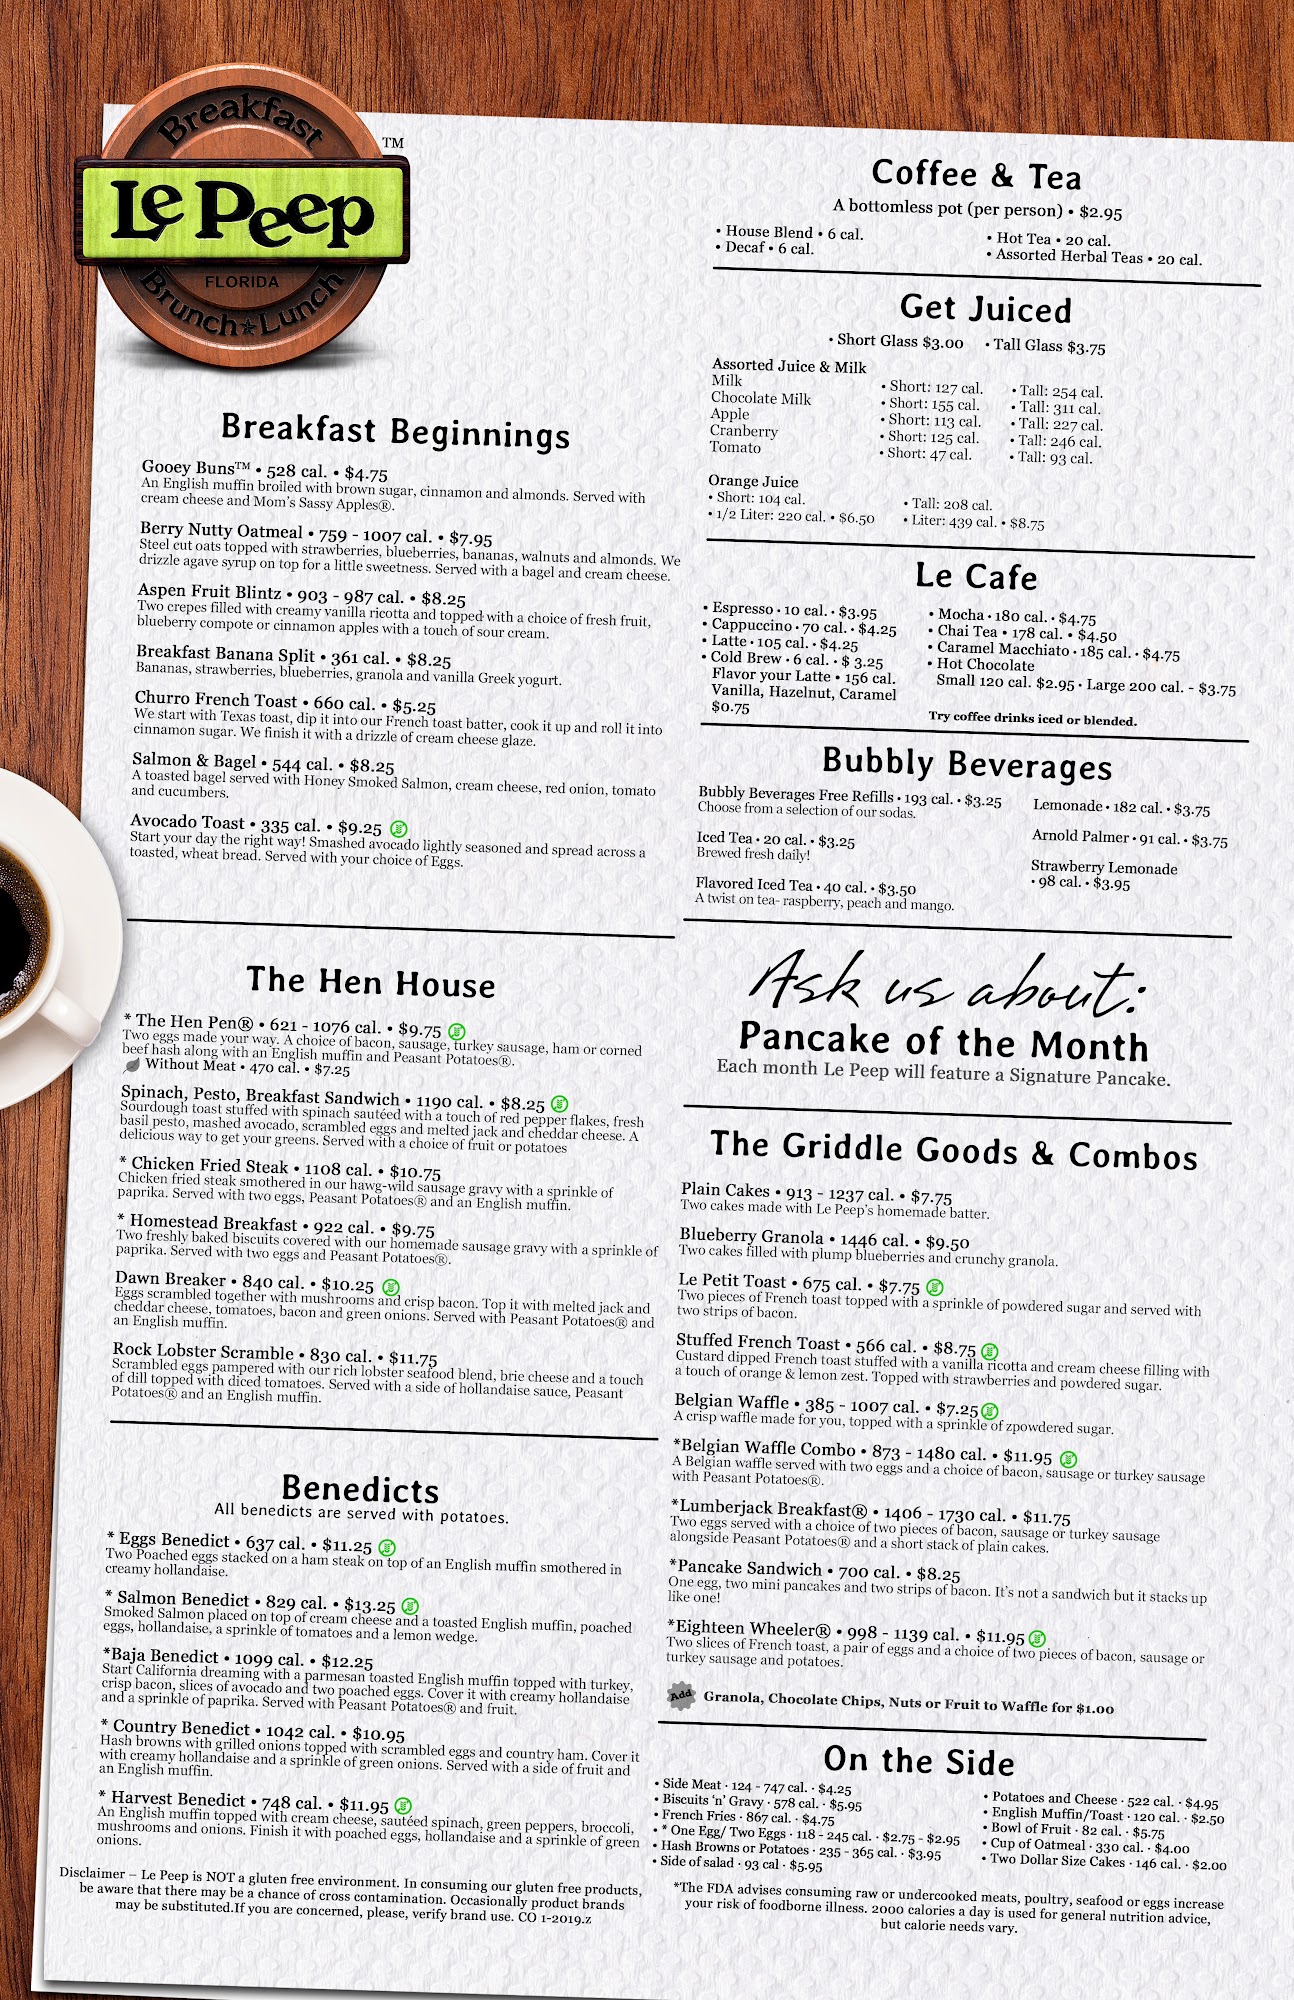 Breakfast
Le Peep
FLORIDA
Brunch Lunch
TM
Breakfast Beginnings
Gooey Buns™ • 528 cal. • $4.75
An English muffin broiled with brown sugar, cinnamon and almonds. Served with
cream cheese and Mom's Sassy Apples®.
Berry Nutty Oatmeal • 759 - 1007 cal. • $7.95
Steel cut oats topped with strawberries, blueberries, bananas, walnuts and almonds. We
drizzle agave syrup on top for a little sweetness. Served with a bagel and cream cheese.
Aspen Fruit Blintz • 903 - 987 cal. • $8.25
Two crepes filled with creamy vanilla ricotta and topped with a choice of fresh fruit,
blueberry compote or cinnamon apples with a touch of sour cream.
Breakfast Banana Split • 361 cal. • $8.25
Bananas, strawberries, blueberries, granola and vanilla Greek yogurt.
Churro French Toast • 660 cal. • $5.25
We start with Texas toast, dip it into our French toast batter, cook it up and roll it into
cinnamon sugar. We finish it with a drizzle of cream cheese glaze.
Salmon & Bagel • 544 cal. • $8.25
A toasted bagel served with Honey Smoked Salmon, cream cheese, red onion, tomato
and cucumbers.
Avocado Toast • 335 cal. • $9.25
Start your day the right way! Smashed avocado lightly seasoned and spread across a
toasted, wheat bread. Served with your choice of Eggs.
The Hen House
* The Hen Pen® • 621 - 1076 cal. • $9.75
Two eggs made your way. A choice of bacon, sausage, turkey sausage, ham or corned
beef hash along with an English muffin and Peasant Potatoes®.
Without Meat • 470 cal. • $7.25
Spinach, Pesto, Breakfast Sandwich • 1190 cal. • $8.25
Sourdough toast stuffed with spinach sautéed with a touch of red pepper flakes, fresh
basil pesto, mashed avocado, scrambled eggs and melted jack and cheddar cheese. A
delicious way to get your greens. Served with a choice of fruit or potatoes
* Chicken Fried Steak • 1108 cal. • $10.75
Chicken fried steak smothered in our hawg-wild sausage gravy with a sprinkle of
paprika. Served with two eggs, Peasant Potatoes® and an English muffin.
* Homestead Breakfast • 922 cal. • $9.75
Two freshly baked biscuits covered with our homemade sausage gravy with a sprinkle of
paprika. Served with two eggs and Peasant Potatoes®.
Dawn Breaker • 840 cal. • $10.25
Eggs scrambled together with mushrooms and crisp bacon. Top it with melted jack and
cheddar cheese, tomatoes, bacon and green onions. Served with Peasant Potatoes® and
an English muffin.
Rock Lobster Scramble • 830 cal. • $11.75
Scrambled eggs pampered with our rich lobster seafood blend, brie cheese and a touch
of dill topped with diced tomatoes. Served with a side of hollandaise sauce, Peasant
Potatoes® and an English muffin.
Benedicts
All benedicts are served with potatoes.
* Eggs Benedict • 637 cal. • $11.25
Two Poached eggs stacked on a ham steak on top of an English muffin smothered in
creamy hollandaise.
* Salmon Benedict • 829 cal. • $13.25
Smoked Salmon placed on top of cream cheese and a toasted English muffin, poached
eggs, hollandaise, a sprinkle of tomatoes and a lemon wedge.
*Baja Benedict • 1099 cal. • $12.25
Start California dreaming with a parmesan toasted English muffin topped with turkey,
crisp bacon, slices of avocado and two poached eggs. Cover it with creamy hollandaise
and a sprinkle of paprika. Served with Peasant Potatoes® and fruit.
* Country Benedict • 1042 cal. • $10.95
Hash browns with grilled onions topped with scrambled eggs and country ham. Cover it
with creamy hollandaise and a sprinkle of green onions. Served with a side of fruit and
an English muffin.
* Harvest Benedict • 748 cal. • $11.95
An English muffin topped with cream cheese, sautéed spinach, green peppers, broccoli,
mushrooms and onions. Finish it with poached eggs, hollandaise and a sprinkle of green
onions.
Disclaimer – Le Peep is NOT a gluten free environment. In consuming our gluten free products,
be aware that there may be a chance of cross contamination. Occasionally product brands
may be substituted.If you are concerned, please, verify brand use. CO 1-2019.z
Coffee & Tea
A bottomless pot (per person) • $2.95
• House Blend • 6 cal.
• Decaf • 6 cal.
• Hot Tea • 20 cal.
• Assorted Herbal Teas • 20 cal.
Get Juiced
• Short Glass $3.00 • Tall Glass $3.75
Assorted Juice & Milk
Milk • Short: 127 cal. • Tall: 254 cal.
Chocolate Milk • Short: 155 cal. • Tall: 311 cal.
Apple • Short: 113 cal. • Tall: 227 cal.
Cranberry • Short: 125 cal. • Tall: 246 cal.
Tomato • Short: 47 cal. • Tall: 93 cal.
Orange Juice
• Short: 104 cal. • Tall: 208 cal.
• 1/2 Liter: 220 cal. • $6.50 • Liter: 439 cal. • $8.75
Le Cafe
• Espresso • 10 cal. • $3.95
• Cappuccino • 70 cal. • $4.25
• Latte • 105 cal. • $4.25
• Cold Brew • 6 cal. • $ 3.25
Flavor your Latte • 156 cal.
Vanilla, Hazelnut, Caramel
$0.75
• Mocha • 180 cal. • $4.75
• Chai Tea • 178 cal. • $4.50
• Caramel Macchiato • 185 cal. • $4.75
• Hot Chocolate
Small 120 cal. $2.95 • Large 200 cal. - $3.75
Try coffee drinks iced or blended.
Bubbly Beverages
Bubbly Beverages Free Refills • 193 cal. • $3.25
Choose from a selection of our sodas.
Iced Tea • 20 cal. • $3.25
Brewed fresh daily!
Flavored Iced Tea • 40 cal. • $3.50
A twist on tea- raspberry, peach and mango.
Lemonade • 182 cal. • $3.75
Arnold Palmer • 91 cal. • $3.75
Strawberry Lemonade
• 98 cal. • $3.95
Ask us about:
Pancake of the Month
Each month Le Peep will feature a Signature Pancake.
The Griddle Goods & Combos
Plain Cakes • 913 - 1237 cal. • $7.75
Two cakes made with Le Peep's homemade batter.
Blueberry Granola • 1446 cal. • $9.50
Two cakes filled with plump blueberries and crunchy granola.
Le Petit Toast • 675 cal. • $7.75
Two pieces of French toast topped with a sprinkle of powdered sugar and served with
two strips of bacon.
Stuffed French Toast • 566 cal. • $8.75
Custard dipped French toast stuffed with a vanilla ricotta and cream cheese filling with
a touch of orange & lemon zest. Topped with strawberries and powdered sugar.
Belgian Waffle • 385 - 1007 cal. • $7.25
A crisp waffle made for you, topped with a sprinkle of zpowdered sugar.
*Belgian Waffle Combo • 873 - 1480 cal. • $11.95
A Belgian waffle served with two eggs and a choice of bacon, sausage or turkey sausage
with Peasant Potatoes®.
*Lumberjack Breakfast® • 1406 - 1730 cal. • $11.75
Two eggs served with a choice of two pieces of bacon, sausage or turkey sausage
alongside Peasant Potatoes® and a short stack of plain cakes.
*Pancake Sandwich • 700 cal. • $8.25
One egg, two mini pancakes and two strips of bacon. It's not a sandwich but it stacks up
like one!
*Eighteen Wheeler® • 998 - 1139 cal. • $11.95
Two slices of French toast, a pair of eggs and a choice of two pieces of bacon, sausage or
turkey sausage and potatoes.
Add Granola, Chocolate Chips, Nuts or Fruit to Waffle for $1.00
On the Side
• Side Meat • 124 - 747 cal. • $4.25
• Biscuits 'n' Gravy • 578 cal. • $5.95
• French Fries • 867 cal. • $4.75
• * One Egg/ Two Eggs • 118 - 245 cal. • $2.75 - $2.95
• Hash Browns or Potatoes • 235 - 365 cal. • $3.95
• Side of salad • 93 cal • $5.95
• Potatoes and Cheese • 522 cal. • $4.95
• English Muffin/Toast • 120 cal. • $2.50
• Bowl of Fruit • 82 cal. • $5.75
• Cup of Oatmeal • 330 cal. • $4.00
• Two Dollar Size Cakes • 146 cal. • $2.00
*The FDA advises consuming raw or undercooked meats, poultry, seafood or eggs increase
your risk of foodborne illness. 2000 calories a day is used for general nutrition advice,
but calorie needs vary.